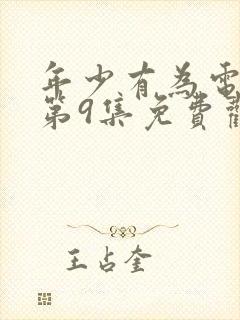 年少有為電
第9集免費觀
王占奎